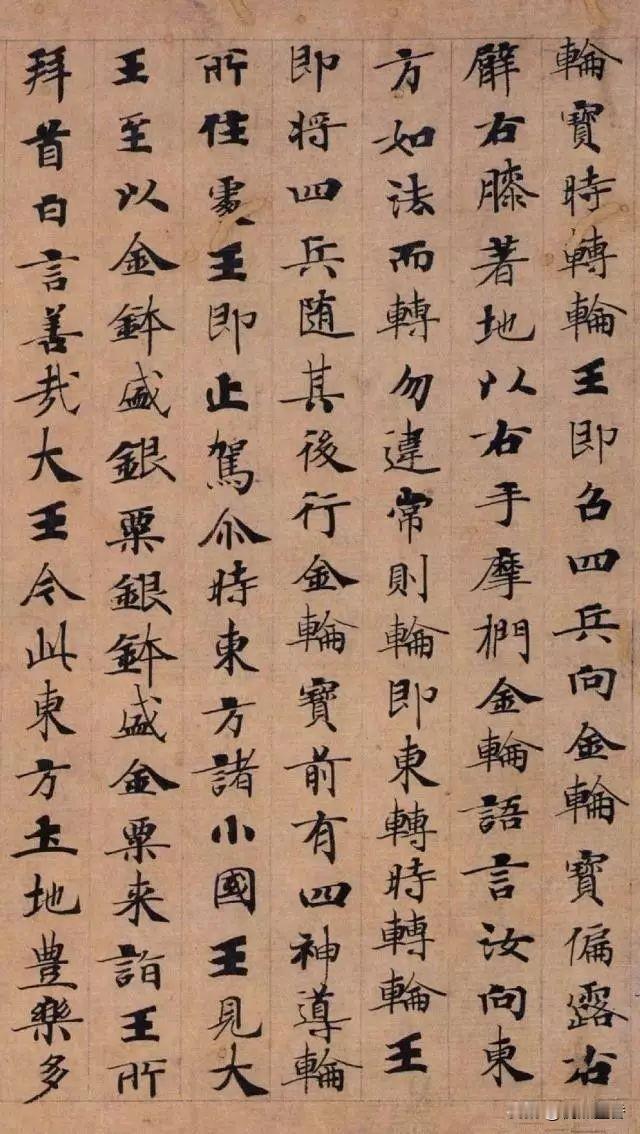 輪寶時轉輪王即召四兵向金輪寶偏露右
臂右膝著地以右手摩捫金輪語言汝向東
方如法而轉勿違常則輪即東轉時轉輪王
即將四兵随其後行金輪寶前有四神導輪
所住處王即止駕尒時東方諸小國王見大
王至以金鉢盛銀粟銀鉢盛金粟来詣王所
拜首白言善哉大王今此東方土地豊樂多